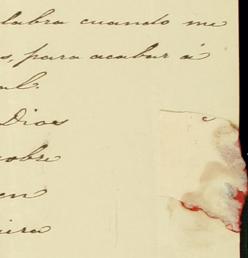 labra cuando me
s, para acabar á
al.
Dios
obre
en
eira